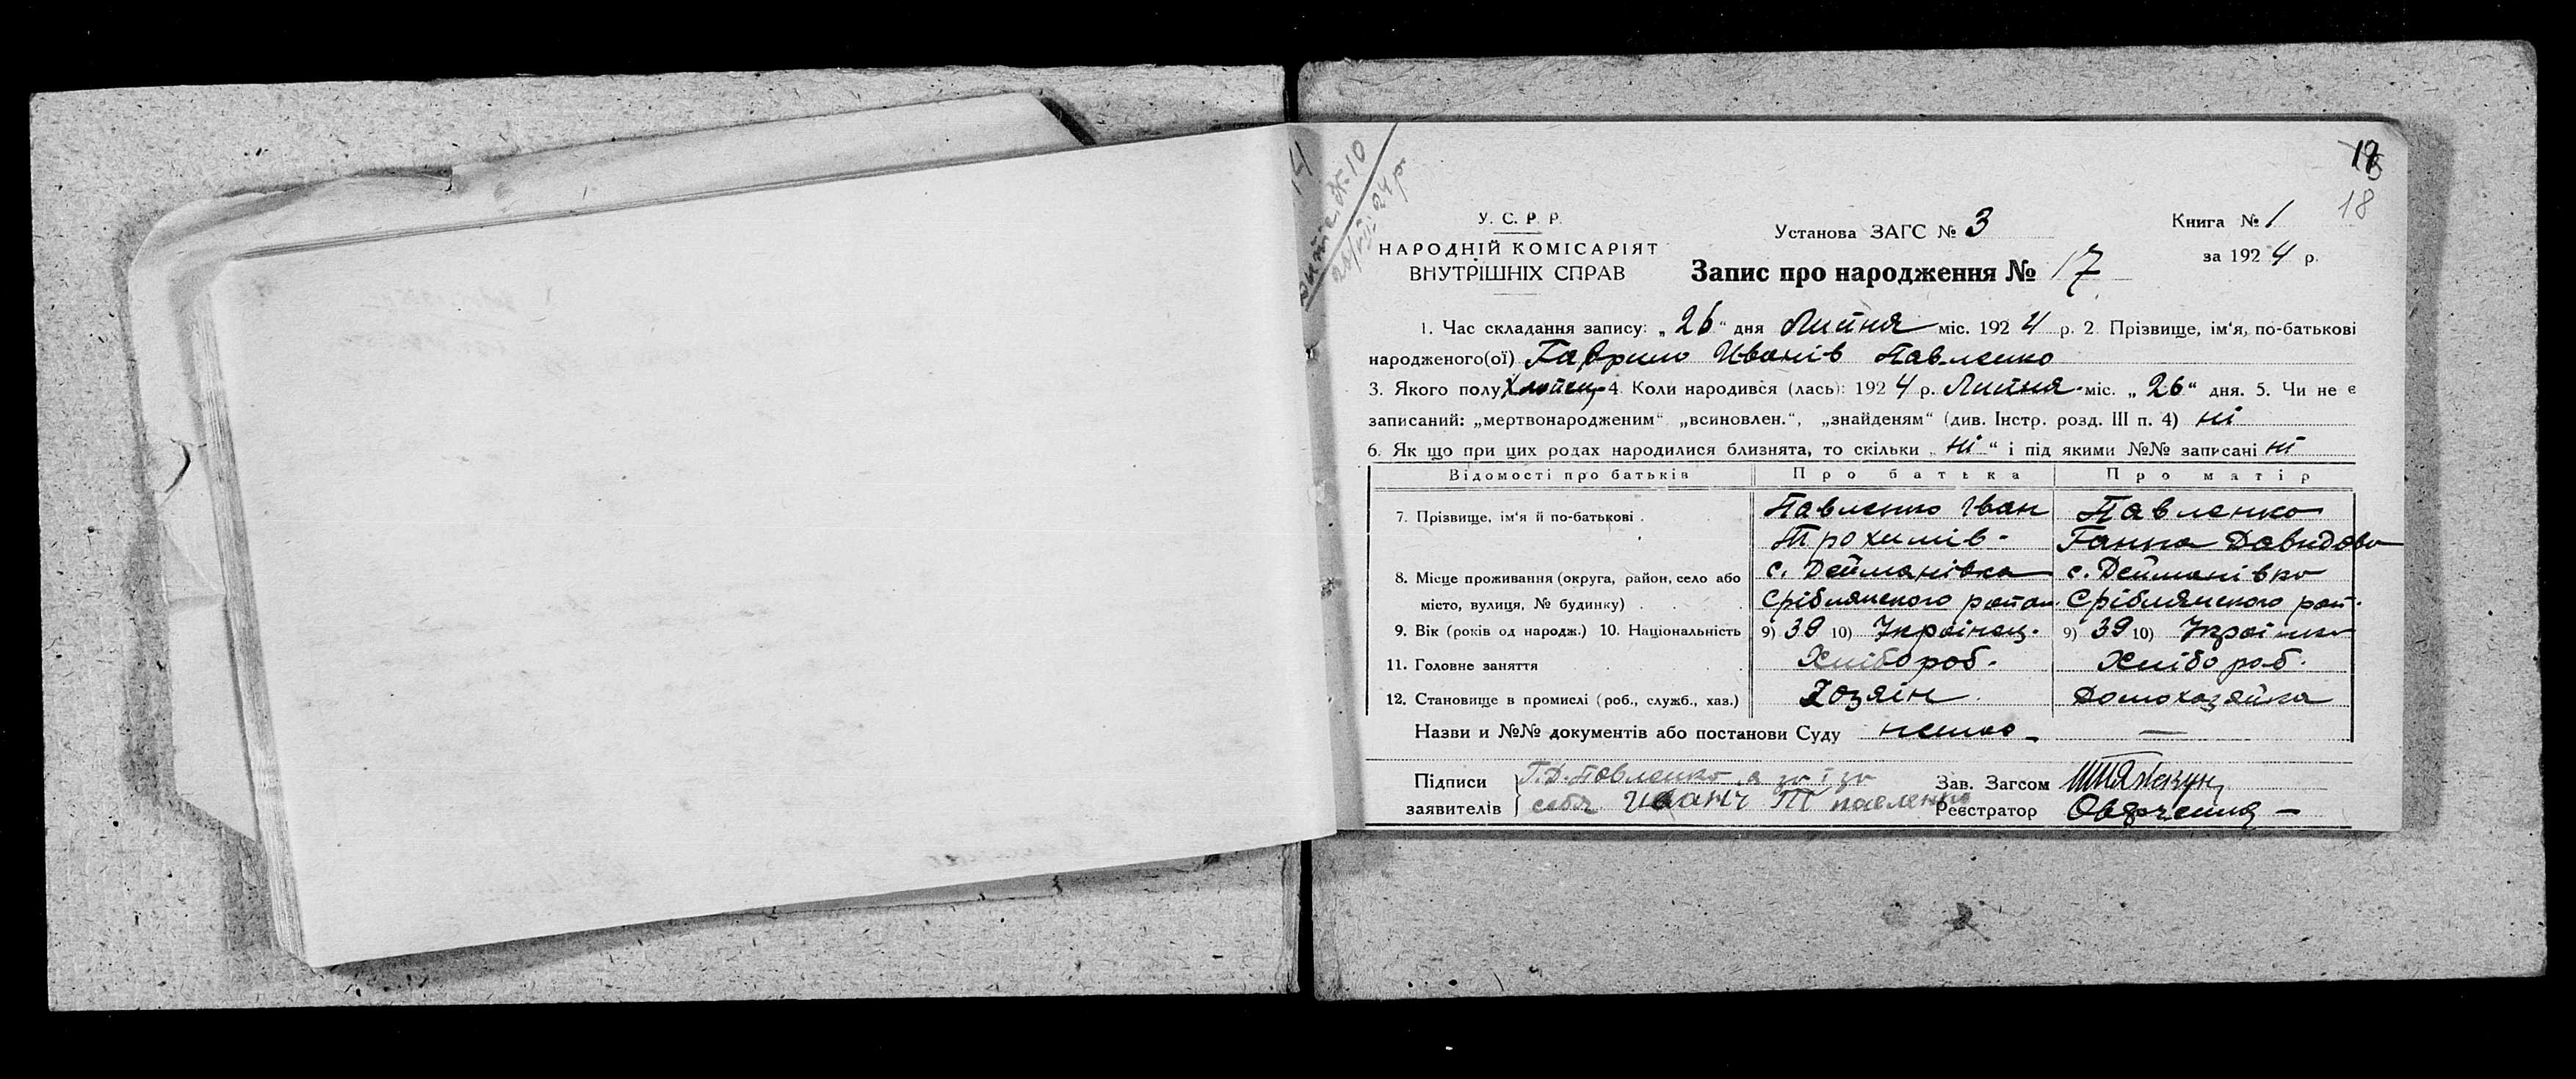 14
№ 10
24 р
18
У. С. Р. Р.
НАРОДНІЙ КОМІСАРІЯТ
ВНУТРІШНІХ СПРАВ
Установа ЗАГС № 3
Книга № 1
за 1924 р.
Запис про народження № 17
1. Час складання запису: „26“ дня Липня міс. 1924 р. 2. Прізвище, ім‘я, по-батькові
народженого(ої) Гаврило Иванів Павленко
3. Якого полу Хлопец 4. Коли народився (лась): 1924 р. Липня міс. „26“ дня. 5. Чи не є
записаний: „мертвонародженим“ „всиновлен.“, „знайденям“ (див. Інстр. розд. III п. 4) ні
6. Як що при цих родах народилися близнята, то скільки „ні“ і під якими №№ записані ні
Відомості про батьків Про батька Про матір
7. Прізвище, ім‘я й по-батькові . Павленко Іван Павленко
Трохимів - Ганна Давидова
8. Місце проживання (округа, район, село або с. Дейманівка с. Дейманівка
місто, вулиця, № будинку) . . . Сріблянського район. Сріблянського рай.
9. Вік (років од народж.) 10. Національність 9) 39 10) Українец. 9) 39 10) Українка
11. Головне заняття Хлібороб. Хлібороб.
12. Становище в промислі (роб., служб., хаз.) Хозяін. Домохазяйка
Назви и №№ документів або постанови Суду немає — —
Підписи Г. Д. Павленко а за і за Зав. Загсом
заявителів себя Иван Т Павленко Реєстратор